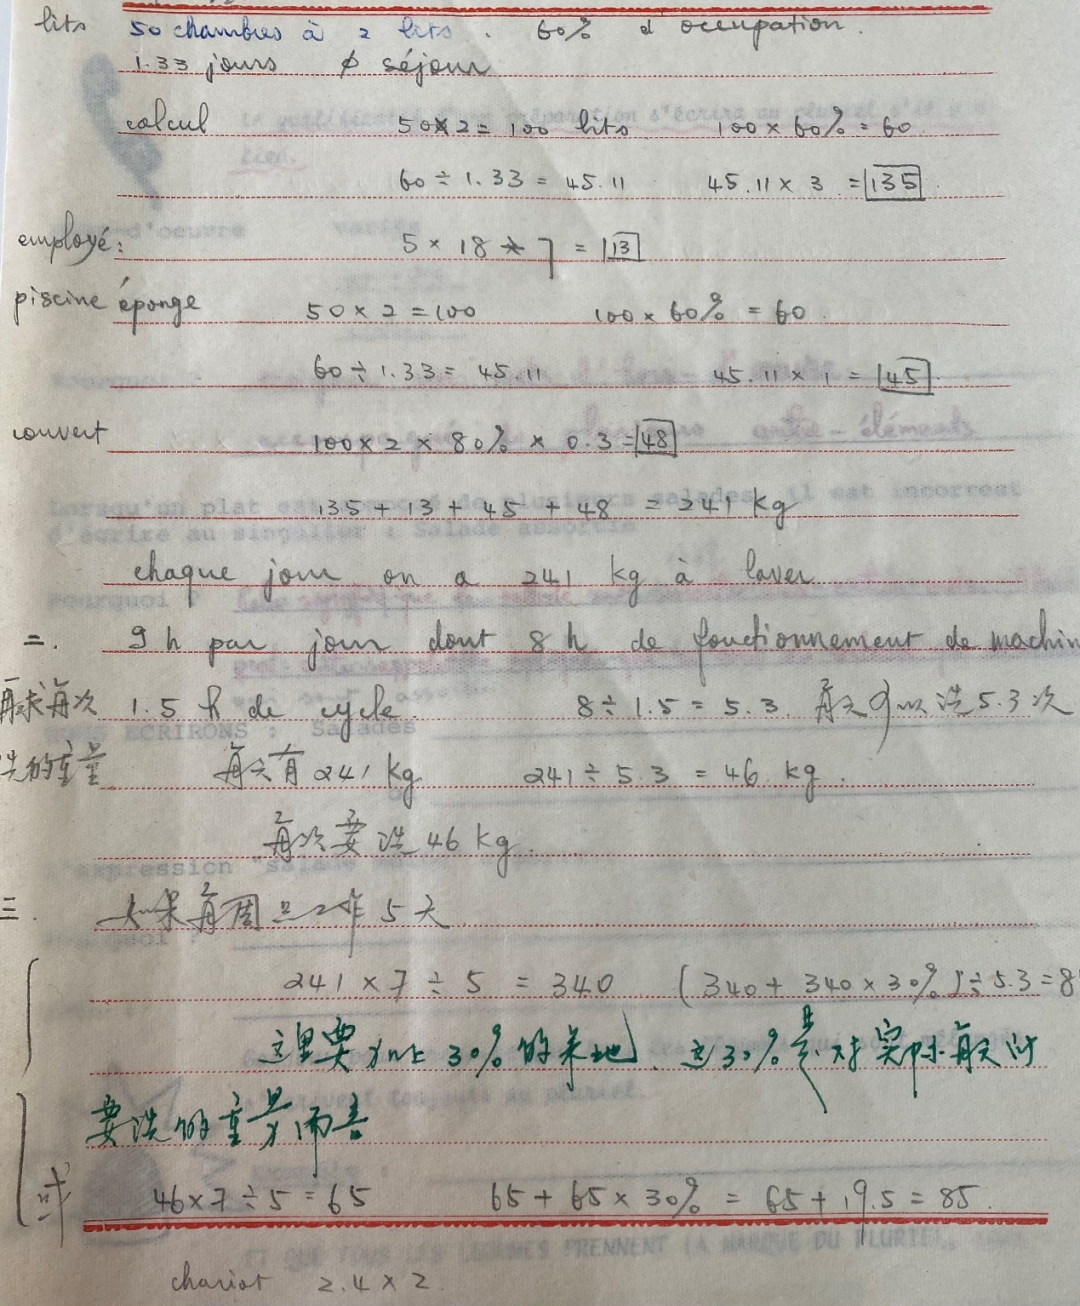 lits 50 chambres à 2 lits. 60% d'occupation.
1.33 jours ∮ séjour
calcul 50×2=100 lits 100×60%=60.
60÷1.33=45.11 45.11×3=135
employé: 5×18÷7=13
piscine éponge 50×2=100 100×60%=60.
60÷1.33=45.11 45.11×1=45.
couvert 100×2×80%×0.3=48
135+13+45+48=241 kg
chaque jour on a 241 kg à laver.
二. 9 h par jour dont 8 h de fonctionnement de machin
再求每次 1.5 h de cycle. 8÷1.5=5.3. 每天可以洗5.3次
洗的重量 每天有241 kg. 241÷5.3=46 kg.
每次要洗46 kg.
三. 如果每周只工作5天
241×7÷5=340 (340+340×30%)÷5.3=8
这里要加上30%的 这30%是对实际每天所
要洗的重量而言
或 46×7÷5=65 65+65×30%=65+19.5=85.
chariot 2.4×2.